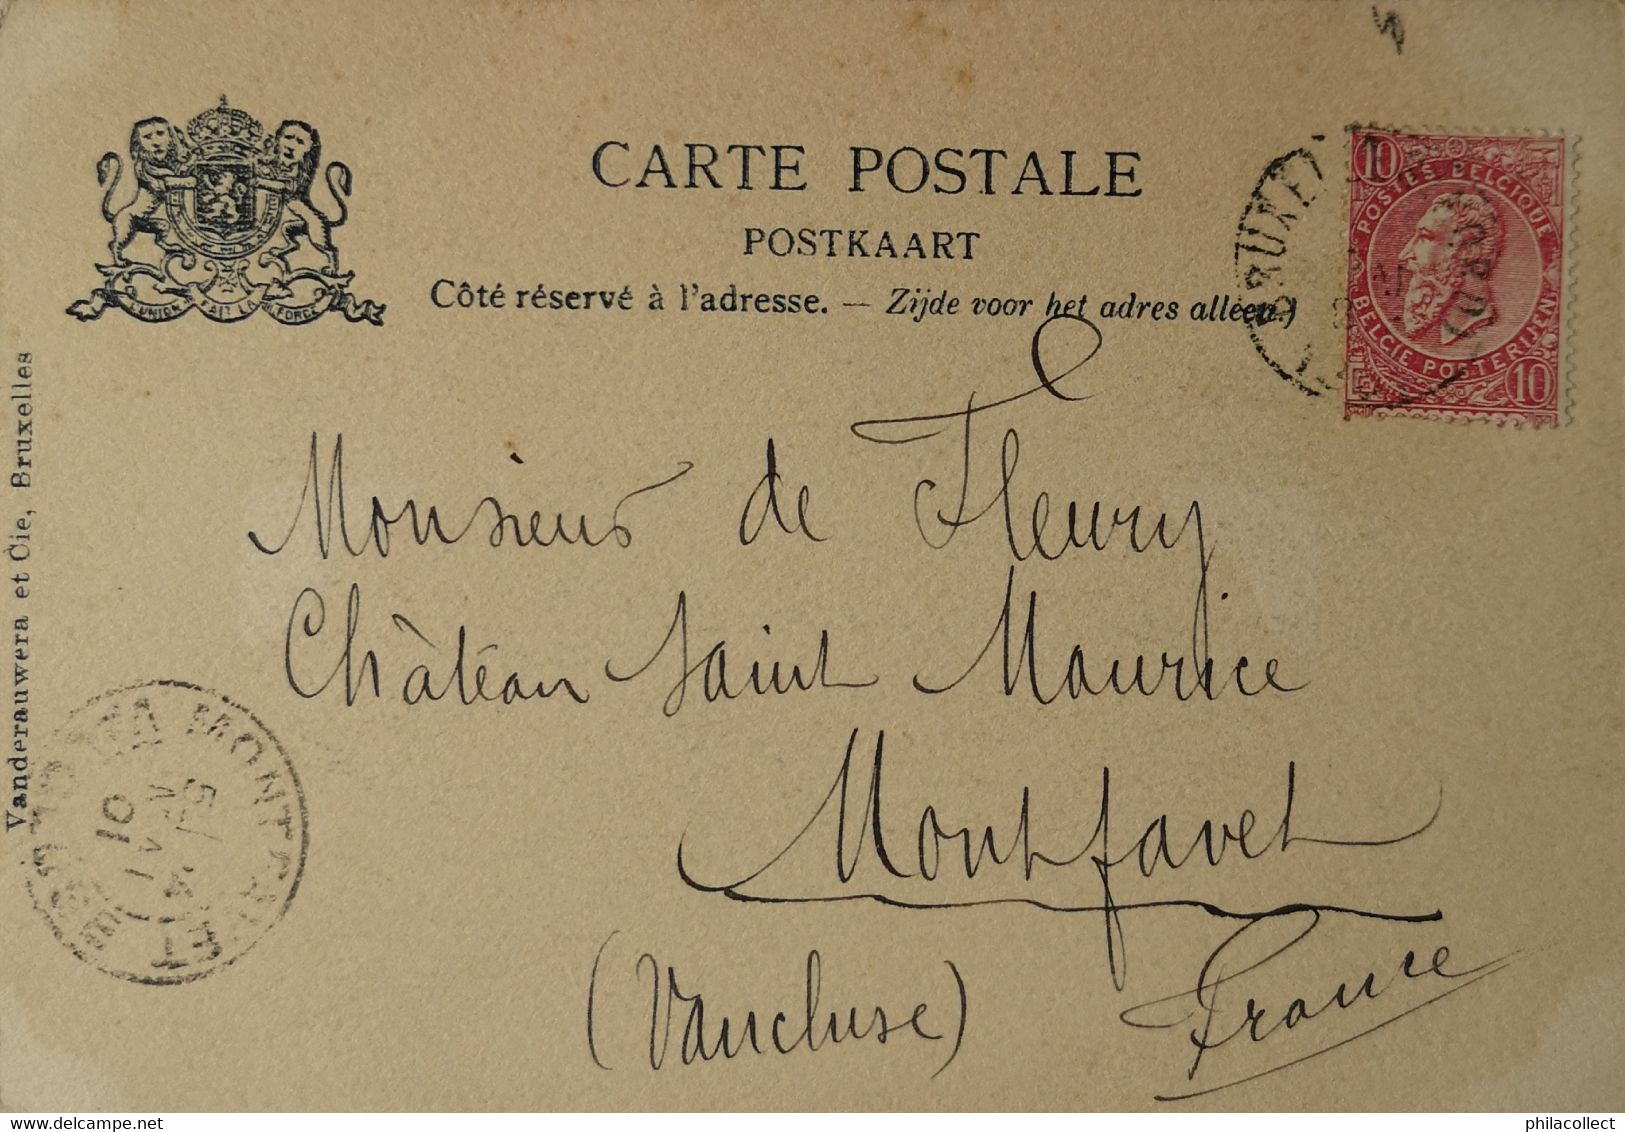 L'UNION FAIT LA FORCE
CARTE POSTALE
POSTKAART
Côté réservé à l'adresse. — Zijde voor het adres alleen.)
10
POSTES BELGIQUE
BELGIE POSTERIJEN
10
Monsieur de Fleury
Château Saint Maurice
Montfavet
(Vaucluse) France
Vanderauwera et Cie, Bruxelles
MONTFAVET
01
www.delcampe.net
philacollect